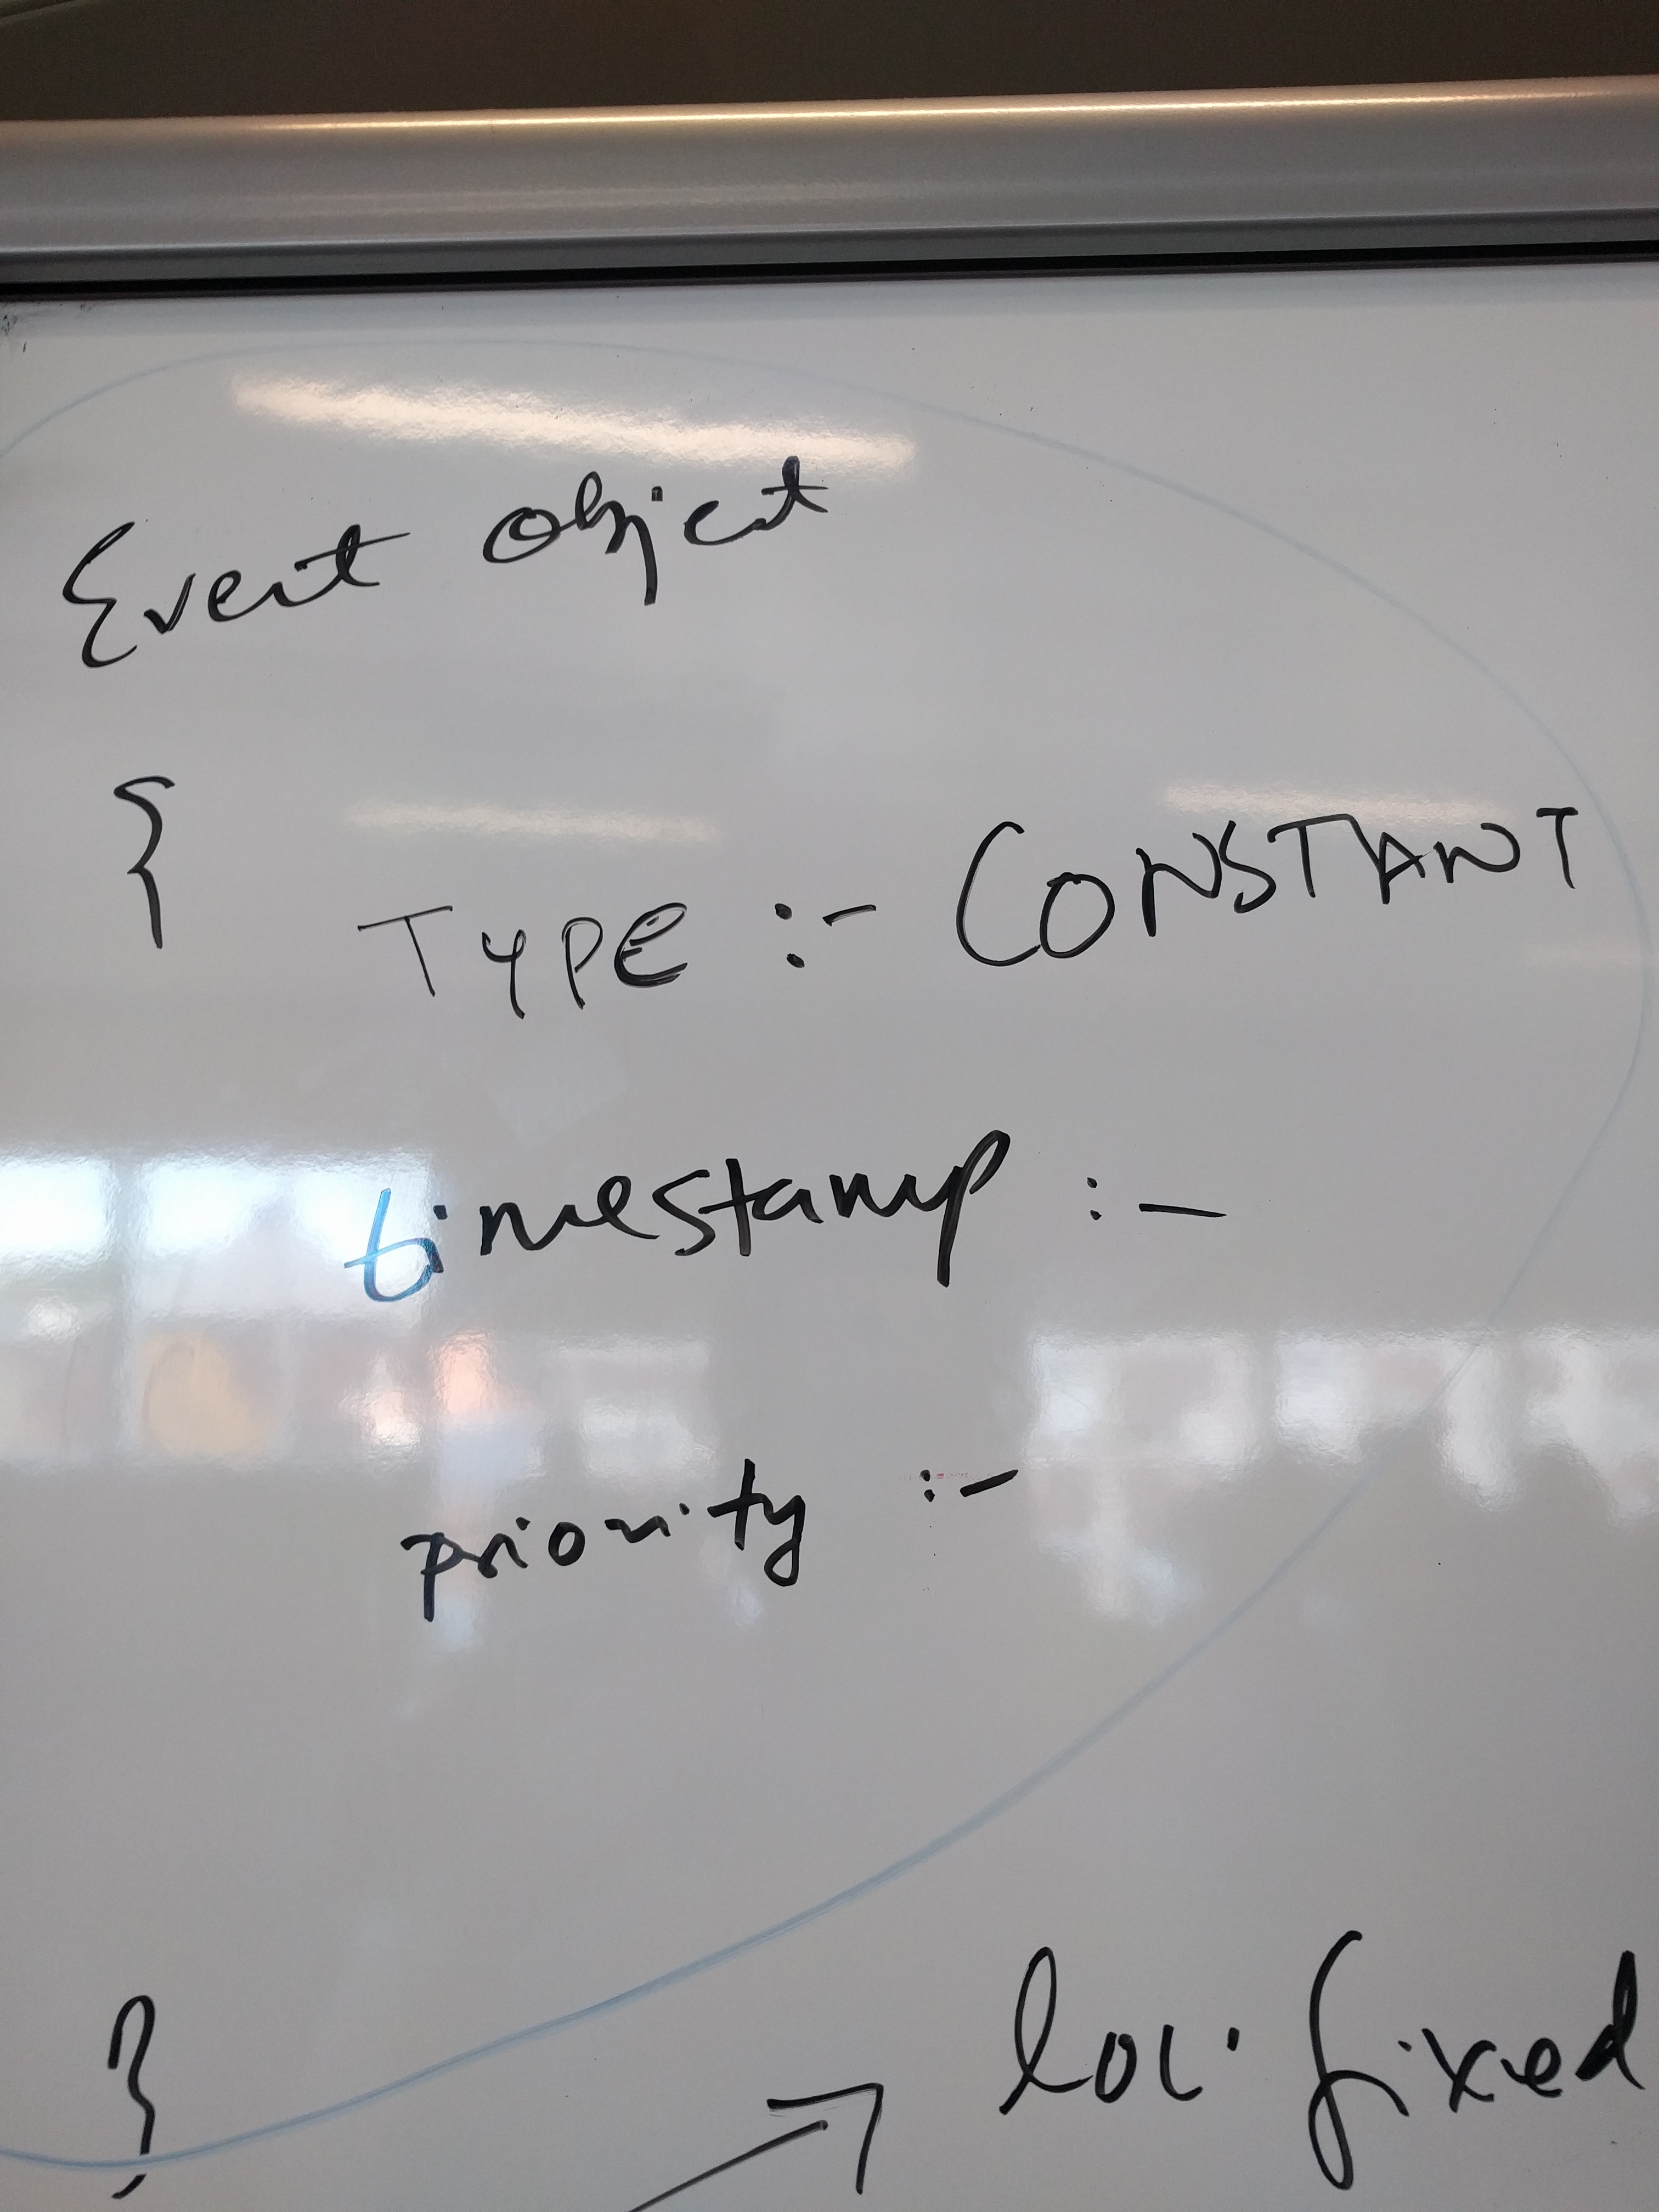 Event object
{
TYPE :- CONSTANT
timestamp :-
priority :-
}
loc. fixed